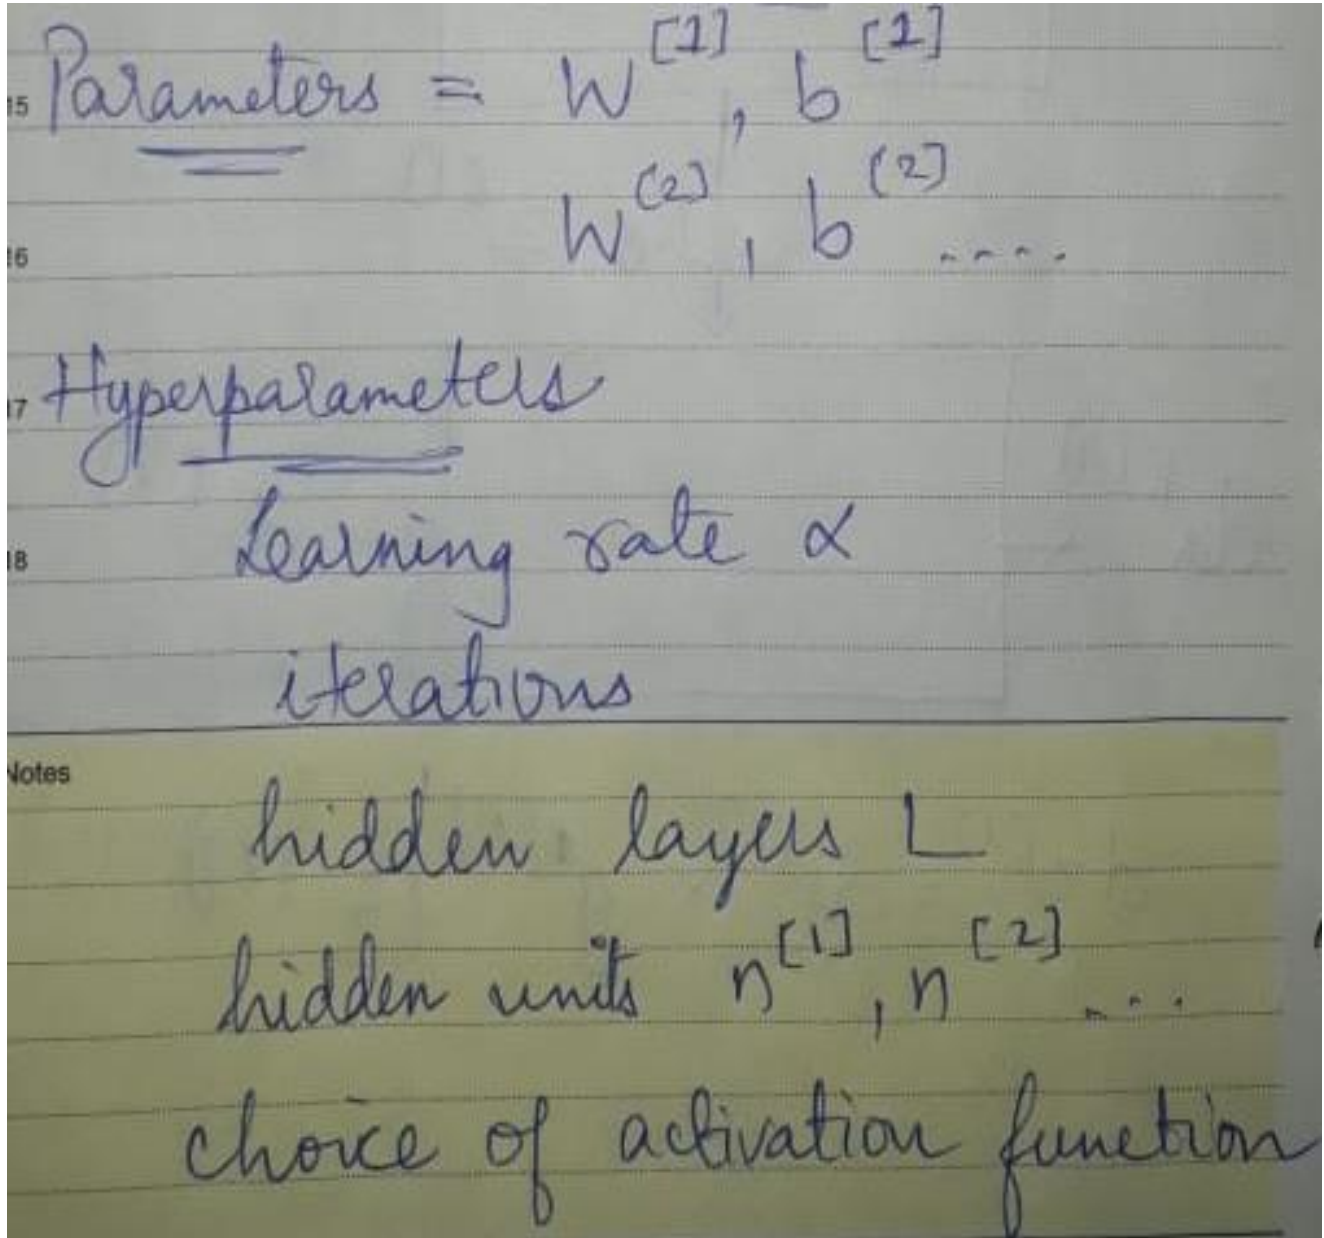 [1] [1]
15 Parameters = W , b
[2] [2]
16 W , b ....
17 Hyperparameters
18 Learning rate α
iterations
Notes
hidden layers L
hidden units n[1], n[2] ....
choice of activation function